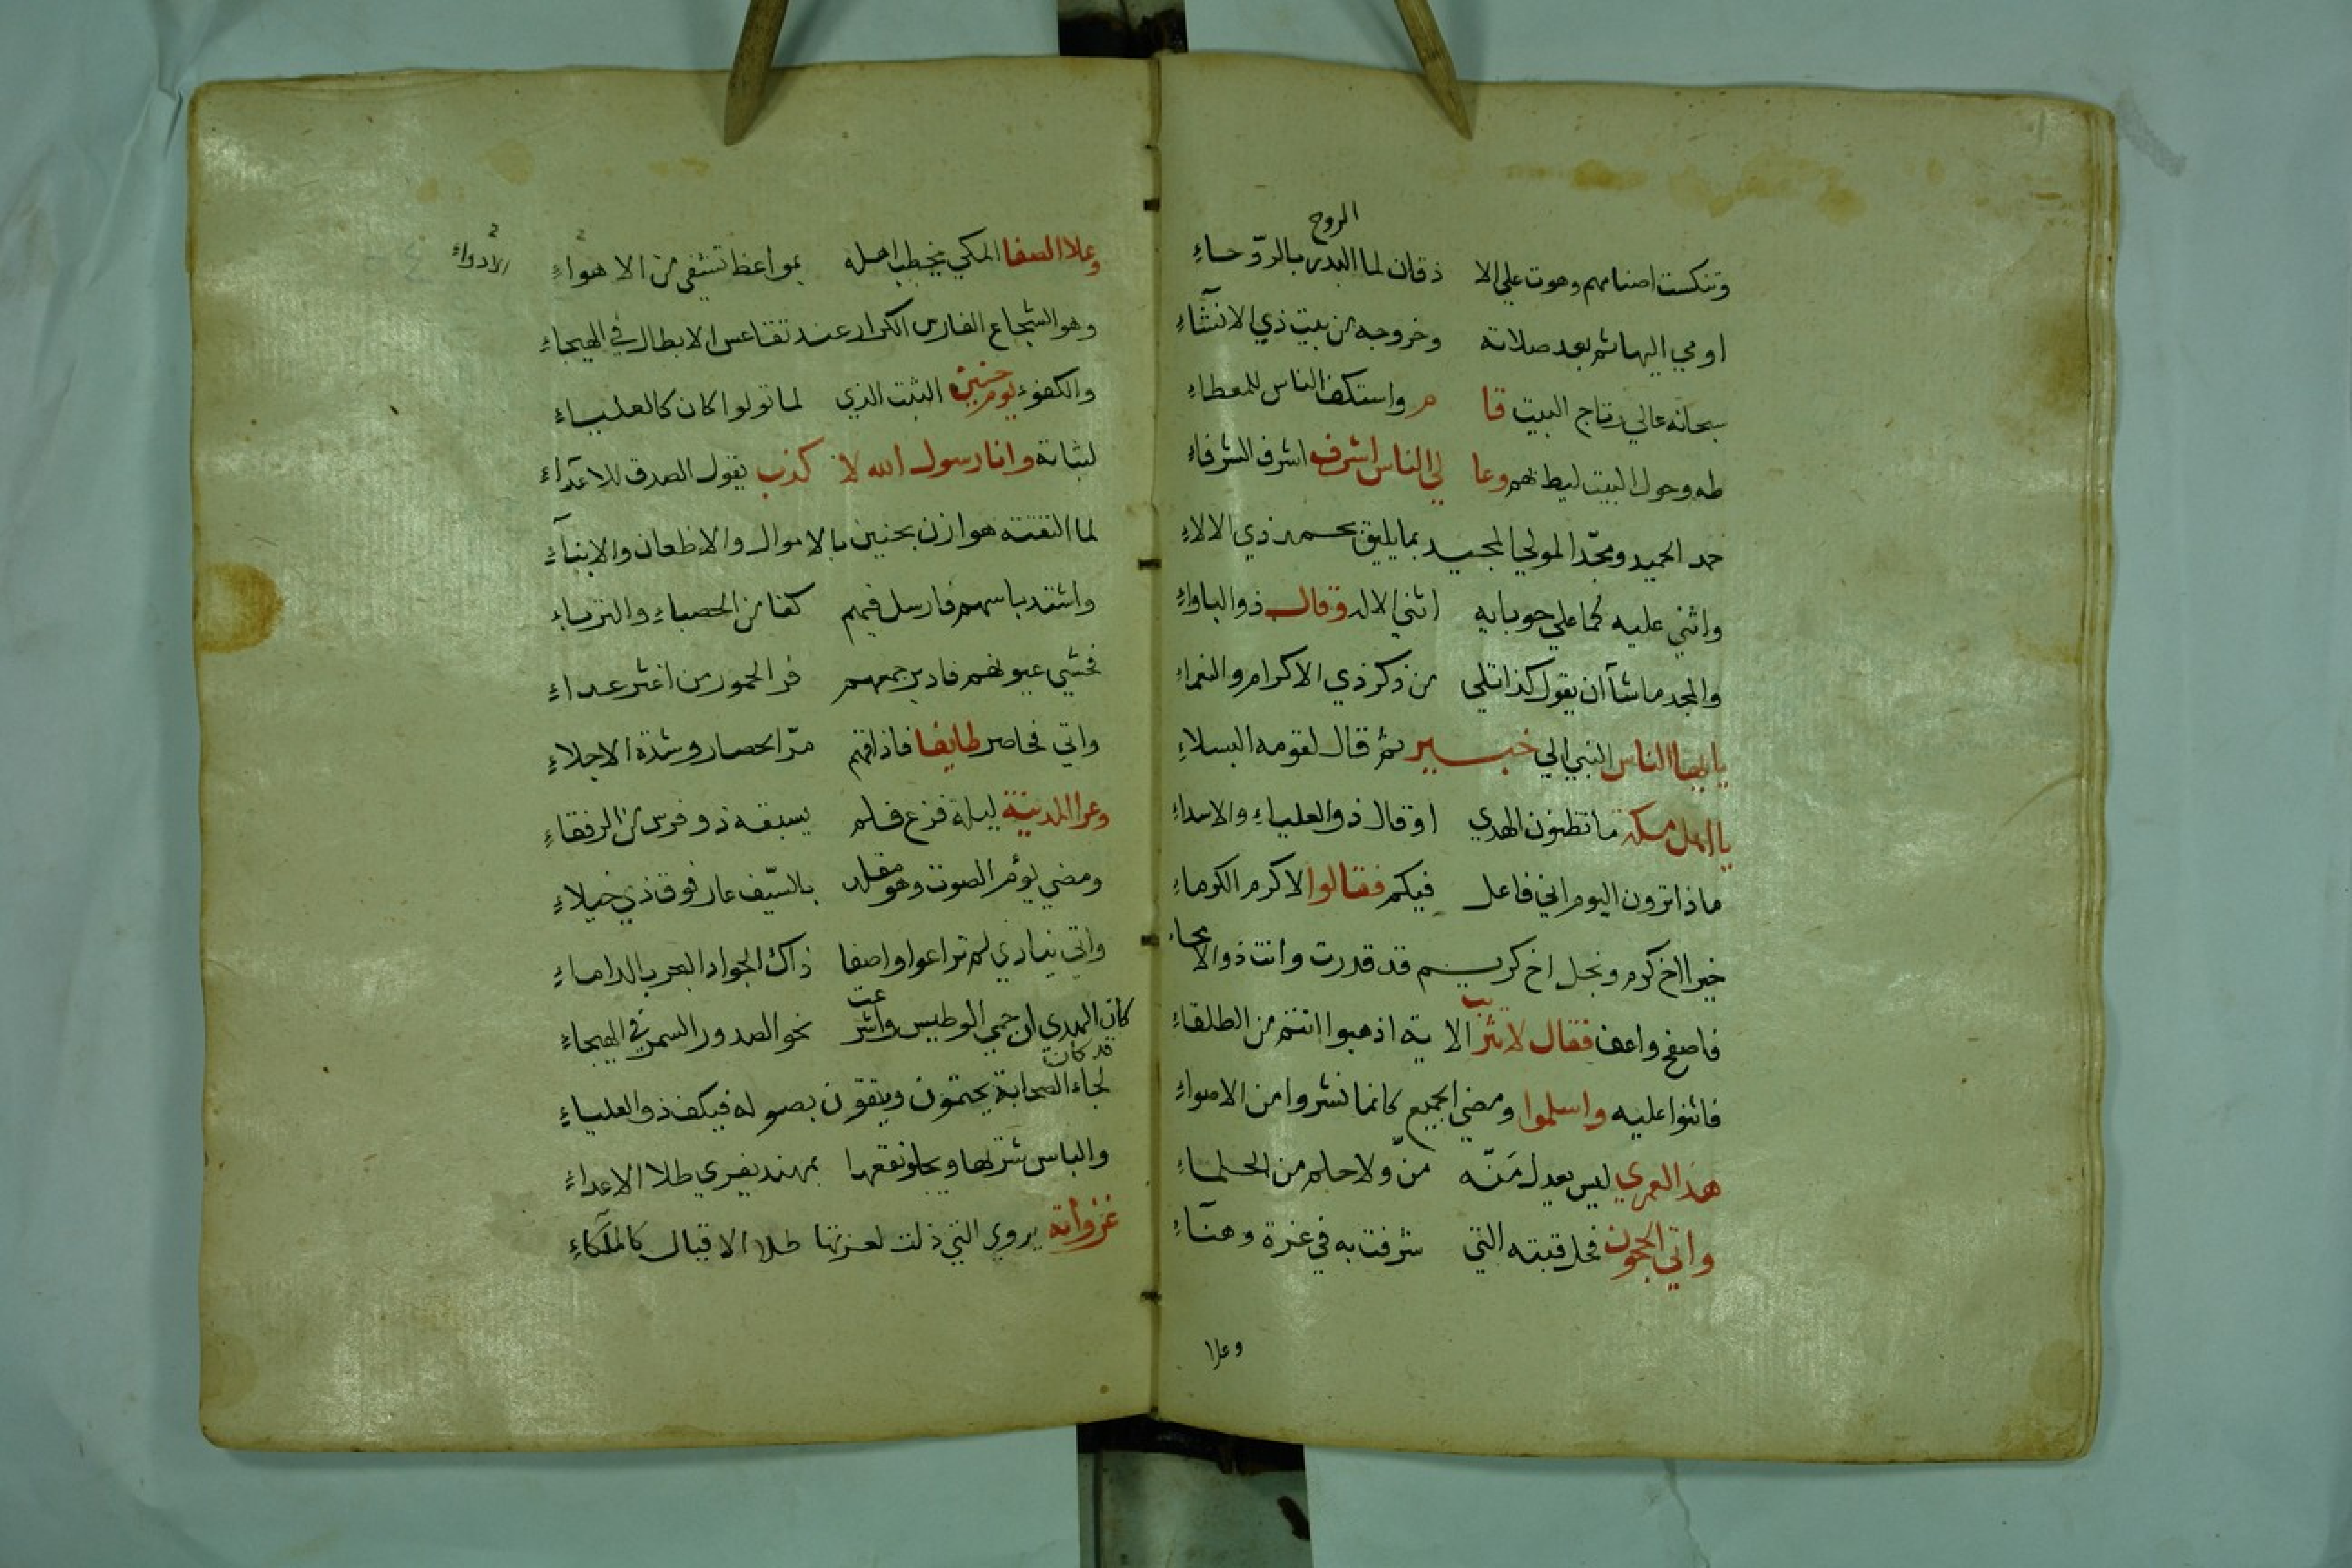 الروح
وتنكست اصنامهم وهوت علي الا ذقان لما البدر بالروّحاءِ
اومي اليها ثم بعد صلاته وخروجه من بيت ذي الانشآءِ
سبحانه عالي رتاج البيت قا م واستكف الناس للمعطاءِ
طه وحول البيت ليطتهم وعا لي الناس اشرف اشرف الشرفاءِ
حمد الحميد ومجّد المولي المجيد بما يليق بحمد ذي الالاءِ
واثني عليه كما علي حوبايه اثني الاله وقال ذو الباواءِ
والمجد ماشاآن يقول كذا تلي من ذكر ذي الاكرام والنعماءِ
يا ايها الناس النبي الي خبير ثم قال لقومه البسلاءِ
يا اهل مكة ما تظنون الهدي او قال ذو العلياءِ والاسداءِ
ماذا ترون اليوم اني فاعل فيكم فقالوا الاكرم الكرماءِ
خيرا اخ كرم ونجل اخ كريم قد قدرت وانت ذو الامحاءِ
فاصفح واعف فقال لا تثريب الاية اذهبوا انتم من الطلقاءِ
فاثنوا عليه واسلموا ومضي الجميع كانما نشروا من الاصواءِ
هذا العمري ليس يعدل مَنّه منّ ولا حلم من الحلماءِ
واتي الحجون فحل قبته التي شرفت به في عزة وهنآءِ
وعلا
وعلا الصفا المكي يخطب اهله بمواعظ تشفي من الاهواءِ
الادواءِ
وهو الشجاع الفارس الكرار عند تقاعس الابطال في الهيجاءِ
والكفوء يوم حنين الثبت الذي لما تولوا كان كالعلياءِ
لثباته وانا رسول الله لا كذب يقول الصدق للاعدآءِ
لما التقته هوازن بحنين بالاموال والاظعان والابنآءِ
واشتد باسهم فارسل فيهم كفا من الحصباءِ والترباءِ
فحشي عيونهم فادبر جمعهم فر الحمور من اغثر عداءِ
واتي فحاصر طايفا فاذاقهم مرّ الحصار وشدة الاجلاءِ
وعرا المدينة ليلة فزع فلم يسبقه ذو فرس من الرفقاءِ
ومضي يؤم الصوت وهو مقلد بالسّيف عار فوق ذي خيلاءِ
واتي ينادي لم تراعوا واصفا ذاك الجواد البحر بالداماءِ
كان الهدي ان حمي الوطيس واشرعت نحو الصدور السمر في الهيجاءِ
قد كان
لجاء الصحابة يحتمون ويتقون بصوله فيكف ذو العلياءِ
والباس شتر لها ويجلو نقعها بمهند يفري طلا الاعداءِ
غزواته يروي التي ذلت لعزتها طلا الاقيال كالملكآءِ